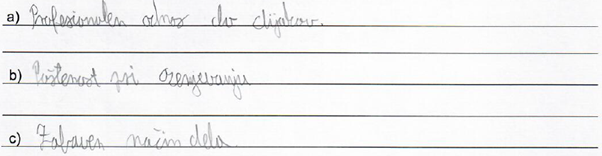 a) Profesionalen odnos do dijakov.
b) Poštenost pri ocenjevanju
c) Zabaven način dela.